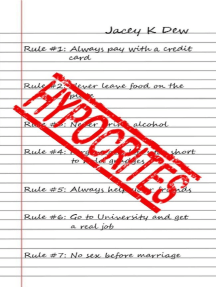 Jacey K Dew
Rule #1: Always pay with a credit
card
Rule #2: Never leave food on the
HYPOCRITES
Rule #3: Never drink alcohol
Rule #4: short
to hold grudges
Rule #5: Always help your friends
Rule #6: Go to University and get
a real job
Rule #7: No sex before marriage